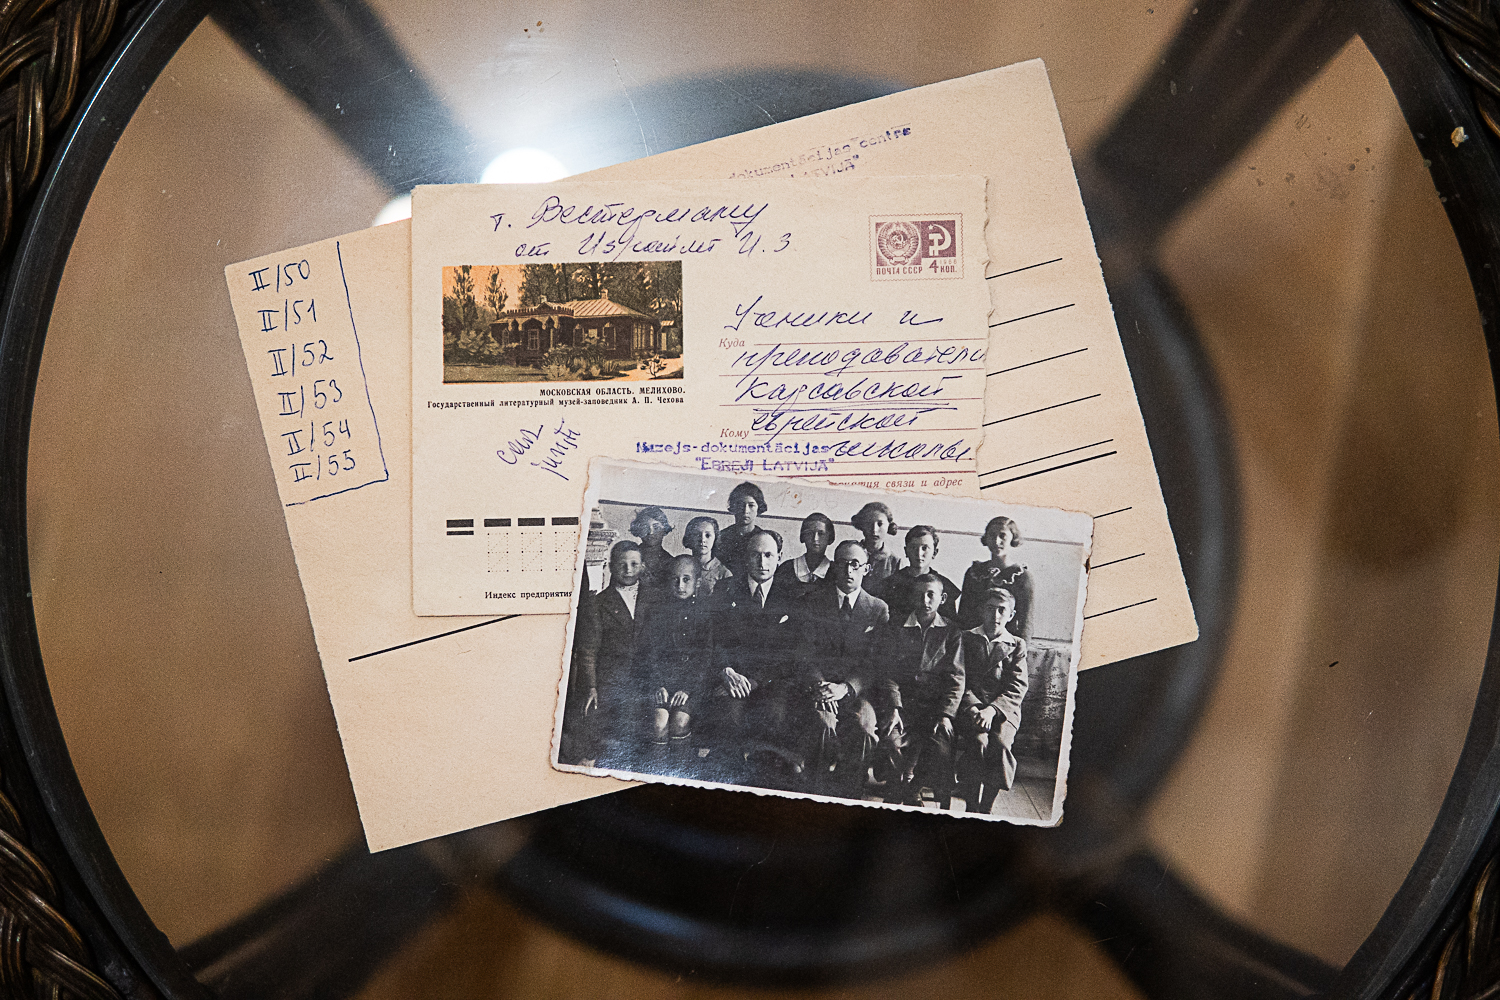 dokumentācijas centrs
LATVIJĀ"
II/50
II/51
II/52
II/53
II/54
II/55
т. Вестерману
от Израилит И. З
ПОЧТА СССР
1966
4 КОП.
МОСКОВСКАЯ ОБЛАСТЬ. МЕЛИХОВО.
Государственный литературный музей-заповедник А. П. Чехова
Куда
Ученики и
преподаватели
Карсавской
Кому
еврейской
школы
Muzejs-dokumentācijas
"EBREJI LATVIJĀ"
связи и адрес
Индекс предприятия